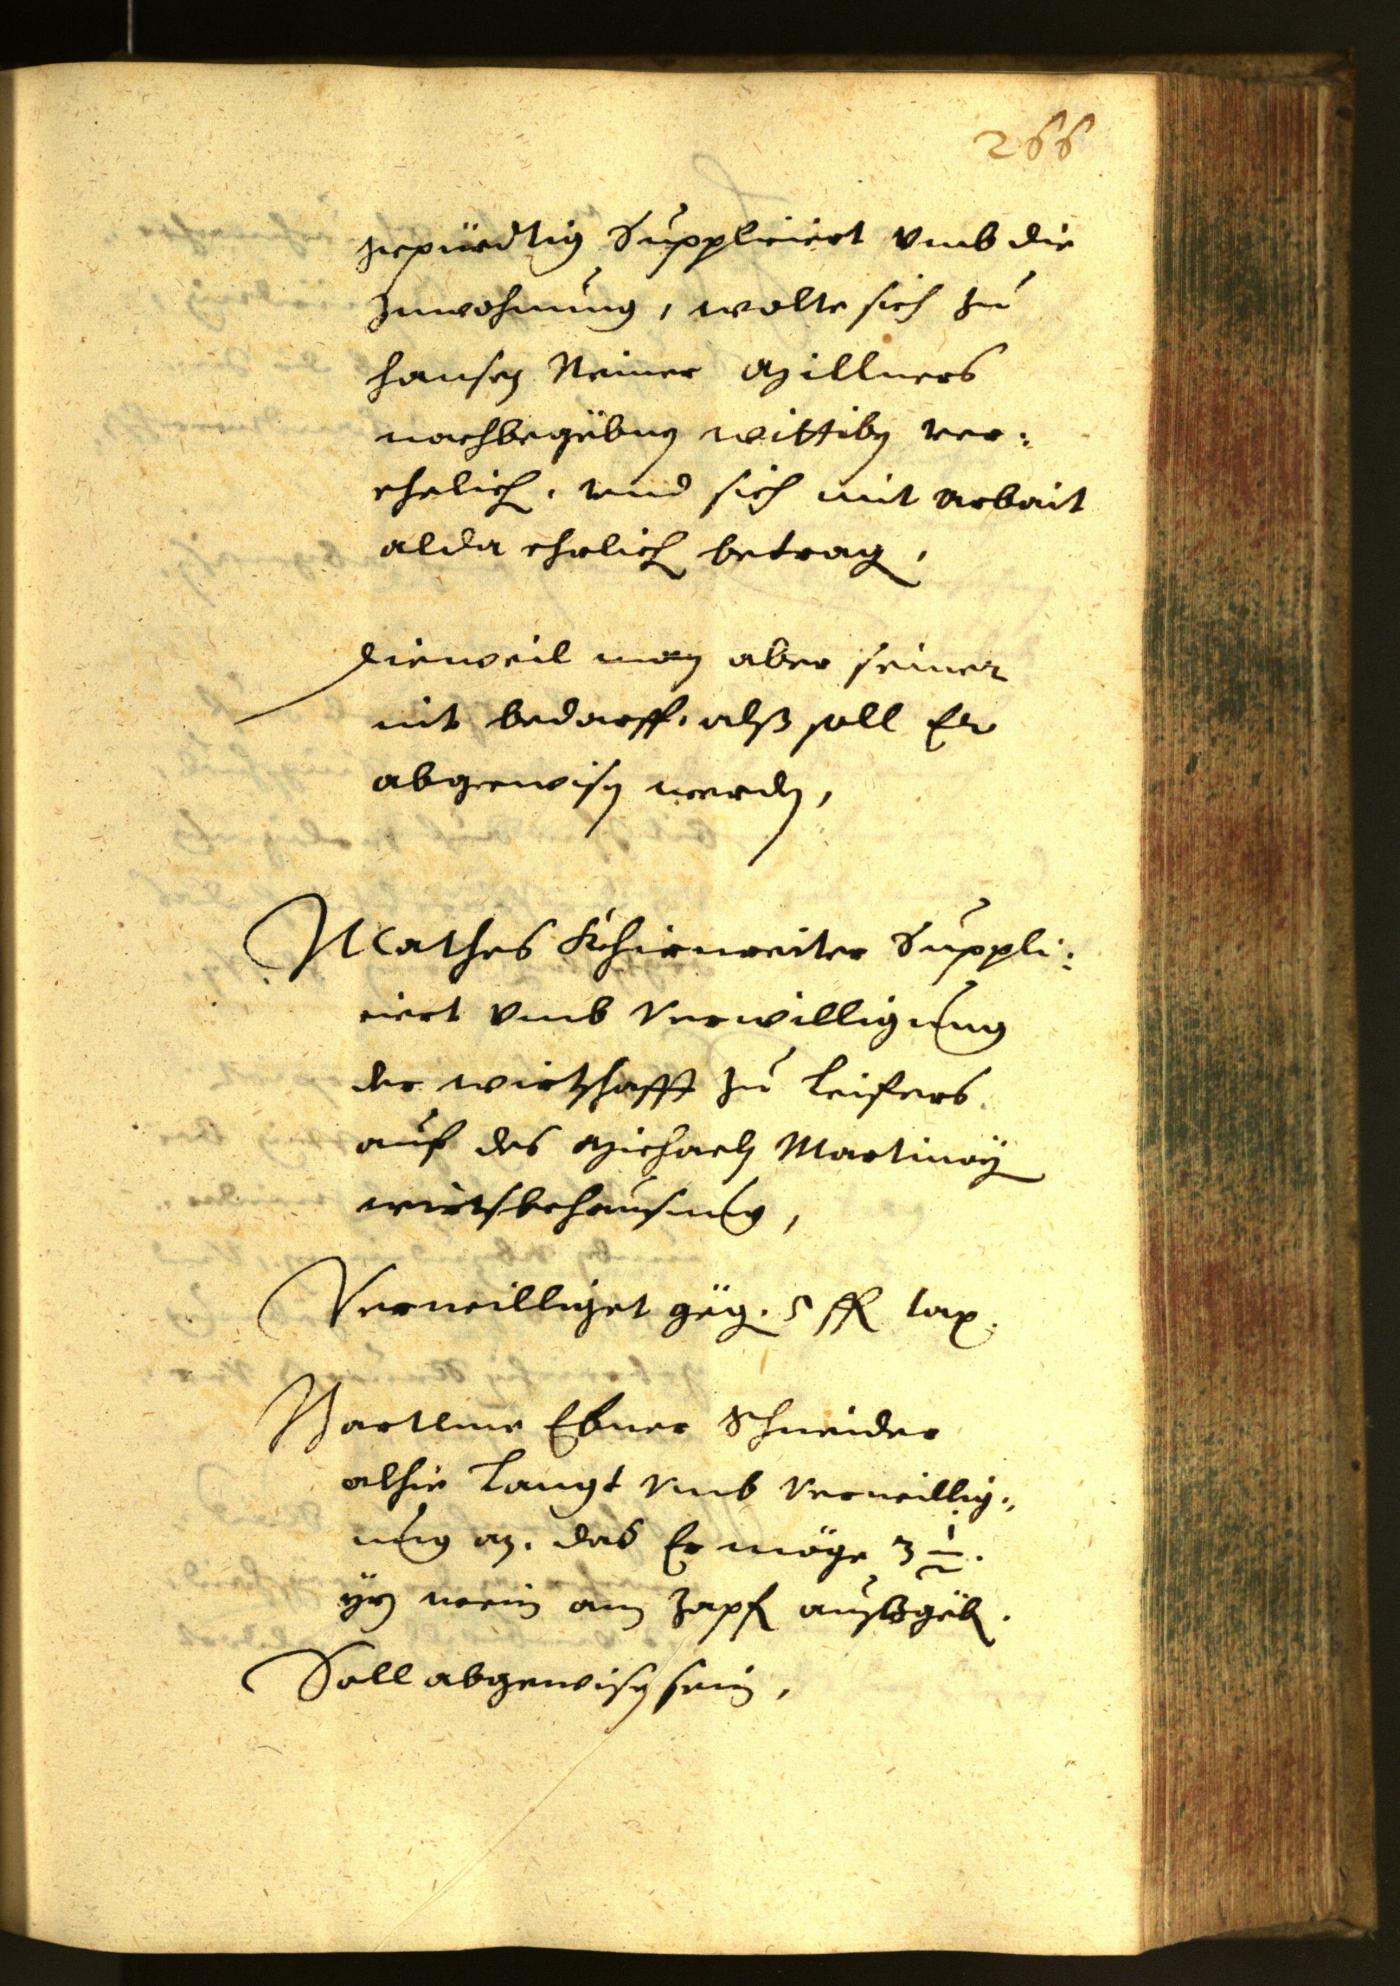 266
gepürdtig Suppliciert vmb die
Inwohnung, wolte sich zu
hansen Reiner Millners
nachbegebnen wittiben ver:
ehelich. vnd sich mit arbait
alda ehrlich betragen,
Dieweil man aber seiner
nit bedarff. alß soll Er
abgewisen werden,
Mathes Khirweiter Suppli:
ciert vmb Verwilligung
der wirtschafft zu Leifers
auf des Michaeln Martinay
wirtsbehausung,
Verwilliget gegen. 5 fl tax.
Bartlme Ebner Schneider
alhie Langt vmb Verwillig:
ung an. das Er möge 3 1/2.
yrn wein am zapfen außgeben.
Soll abgewisen sein,